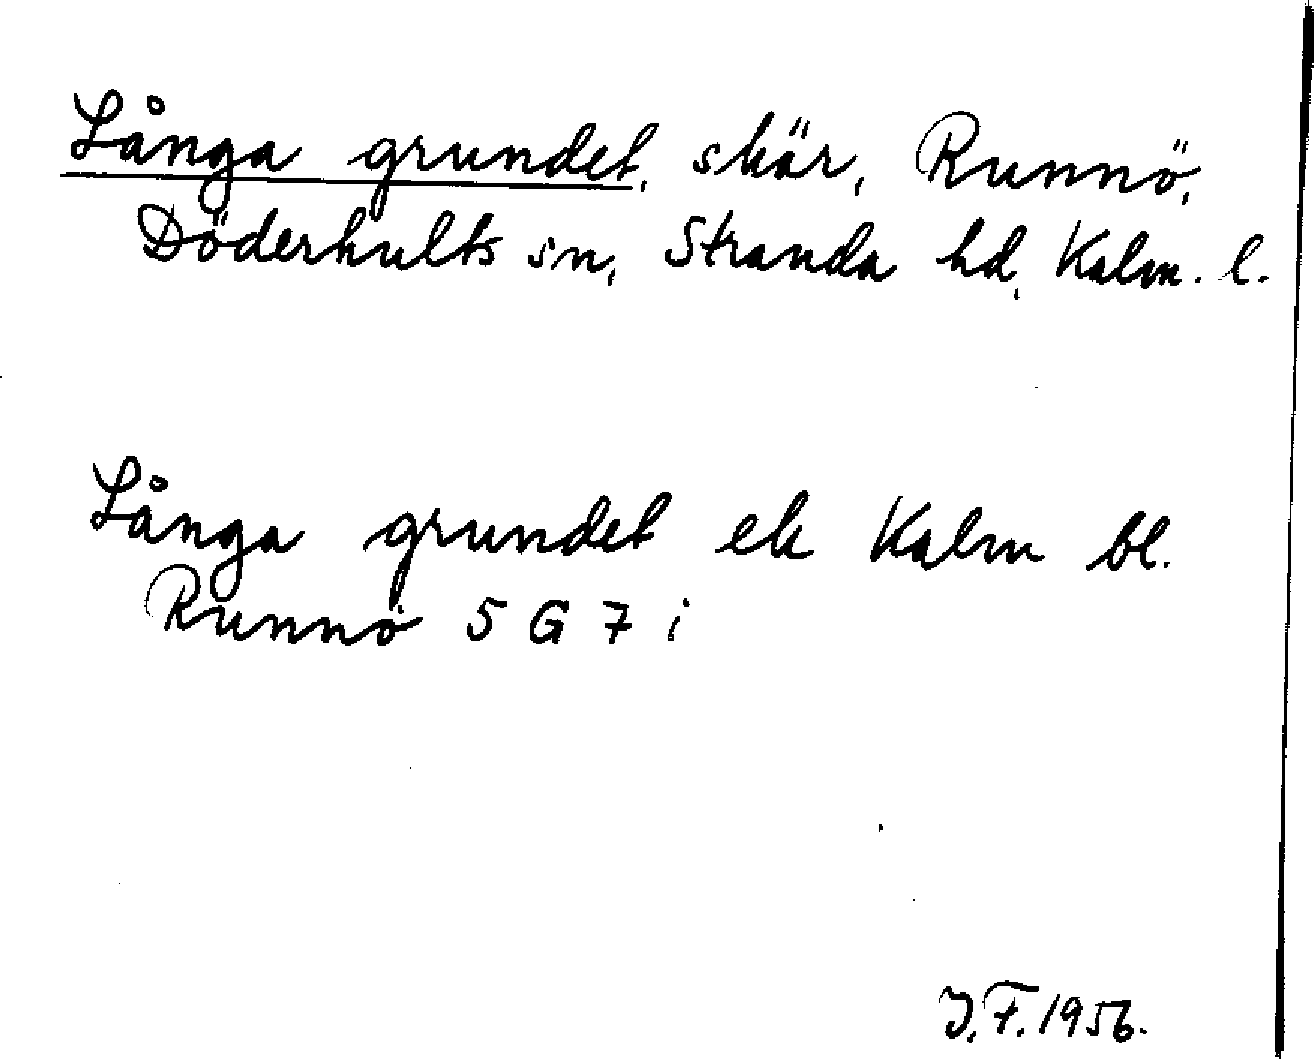 Långa grundet, skär, Runnö,
Döderhults sn, Stranda hd, Kalm. l.
Långa grundet ek Kalm bl.
Runnö 5 G 7 i
J.F. 1956.